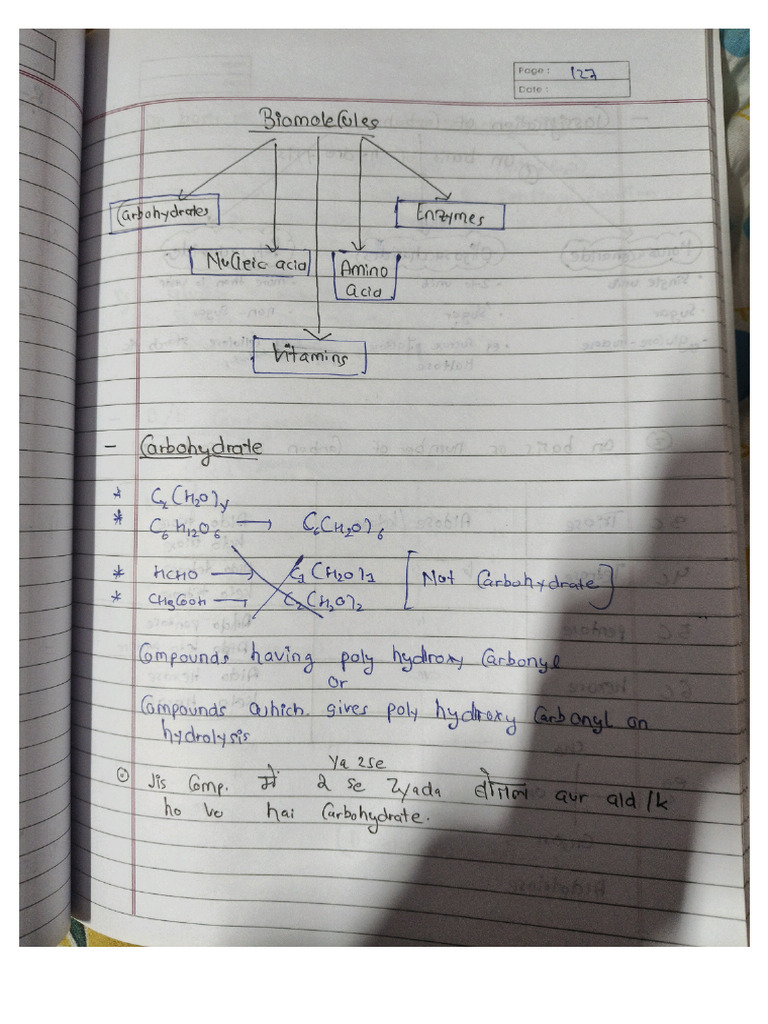 Page: 127
Date:
Biomolecules
Carbohydrates
Enzymes
Nucleic acid
Amino acid
Vitamins
- Carbohydrate
* Cx(H2O)y
* C6H12O6 → C6(H2O)6
* HCHO → C1(H2O)1 [Not Carbohydrate]
* CH3COOH → C2(H2O)2
Compounds having poly hydroxy Carbonyl
or
Compounds which. gives poly hydroxy Carbonyl on
hydrolysis
Ya 2se
Jis Comp. में 2 se Zyada बोतल aur ald/k
ho vo hai Carbohydrate.